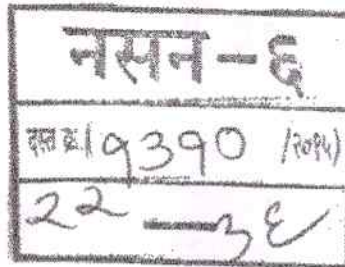 नसन-६
दस्त क्र.(१३१० /२०१५)
२२ — ३६